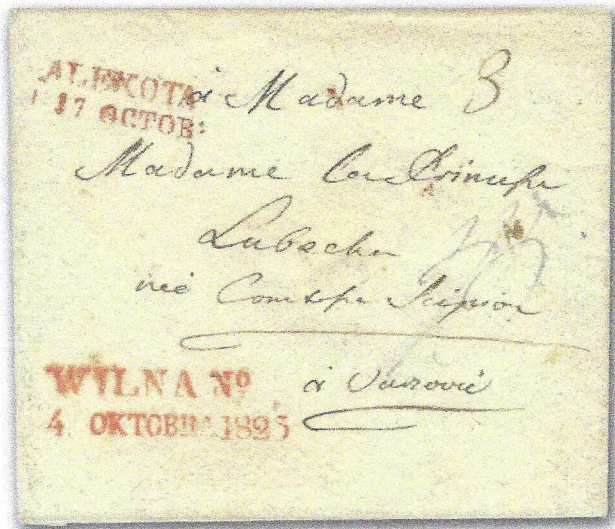 ALEXOTA
17 OCTOB:
à Madame 3
Madame la Princesse
Lubecka
née Comtesse Scipion
WILNA Nº
4 OKTOBRA 1825
à